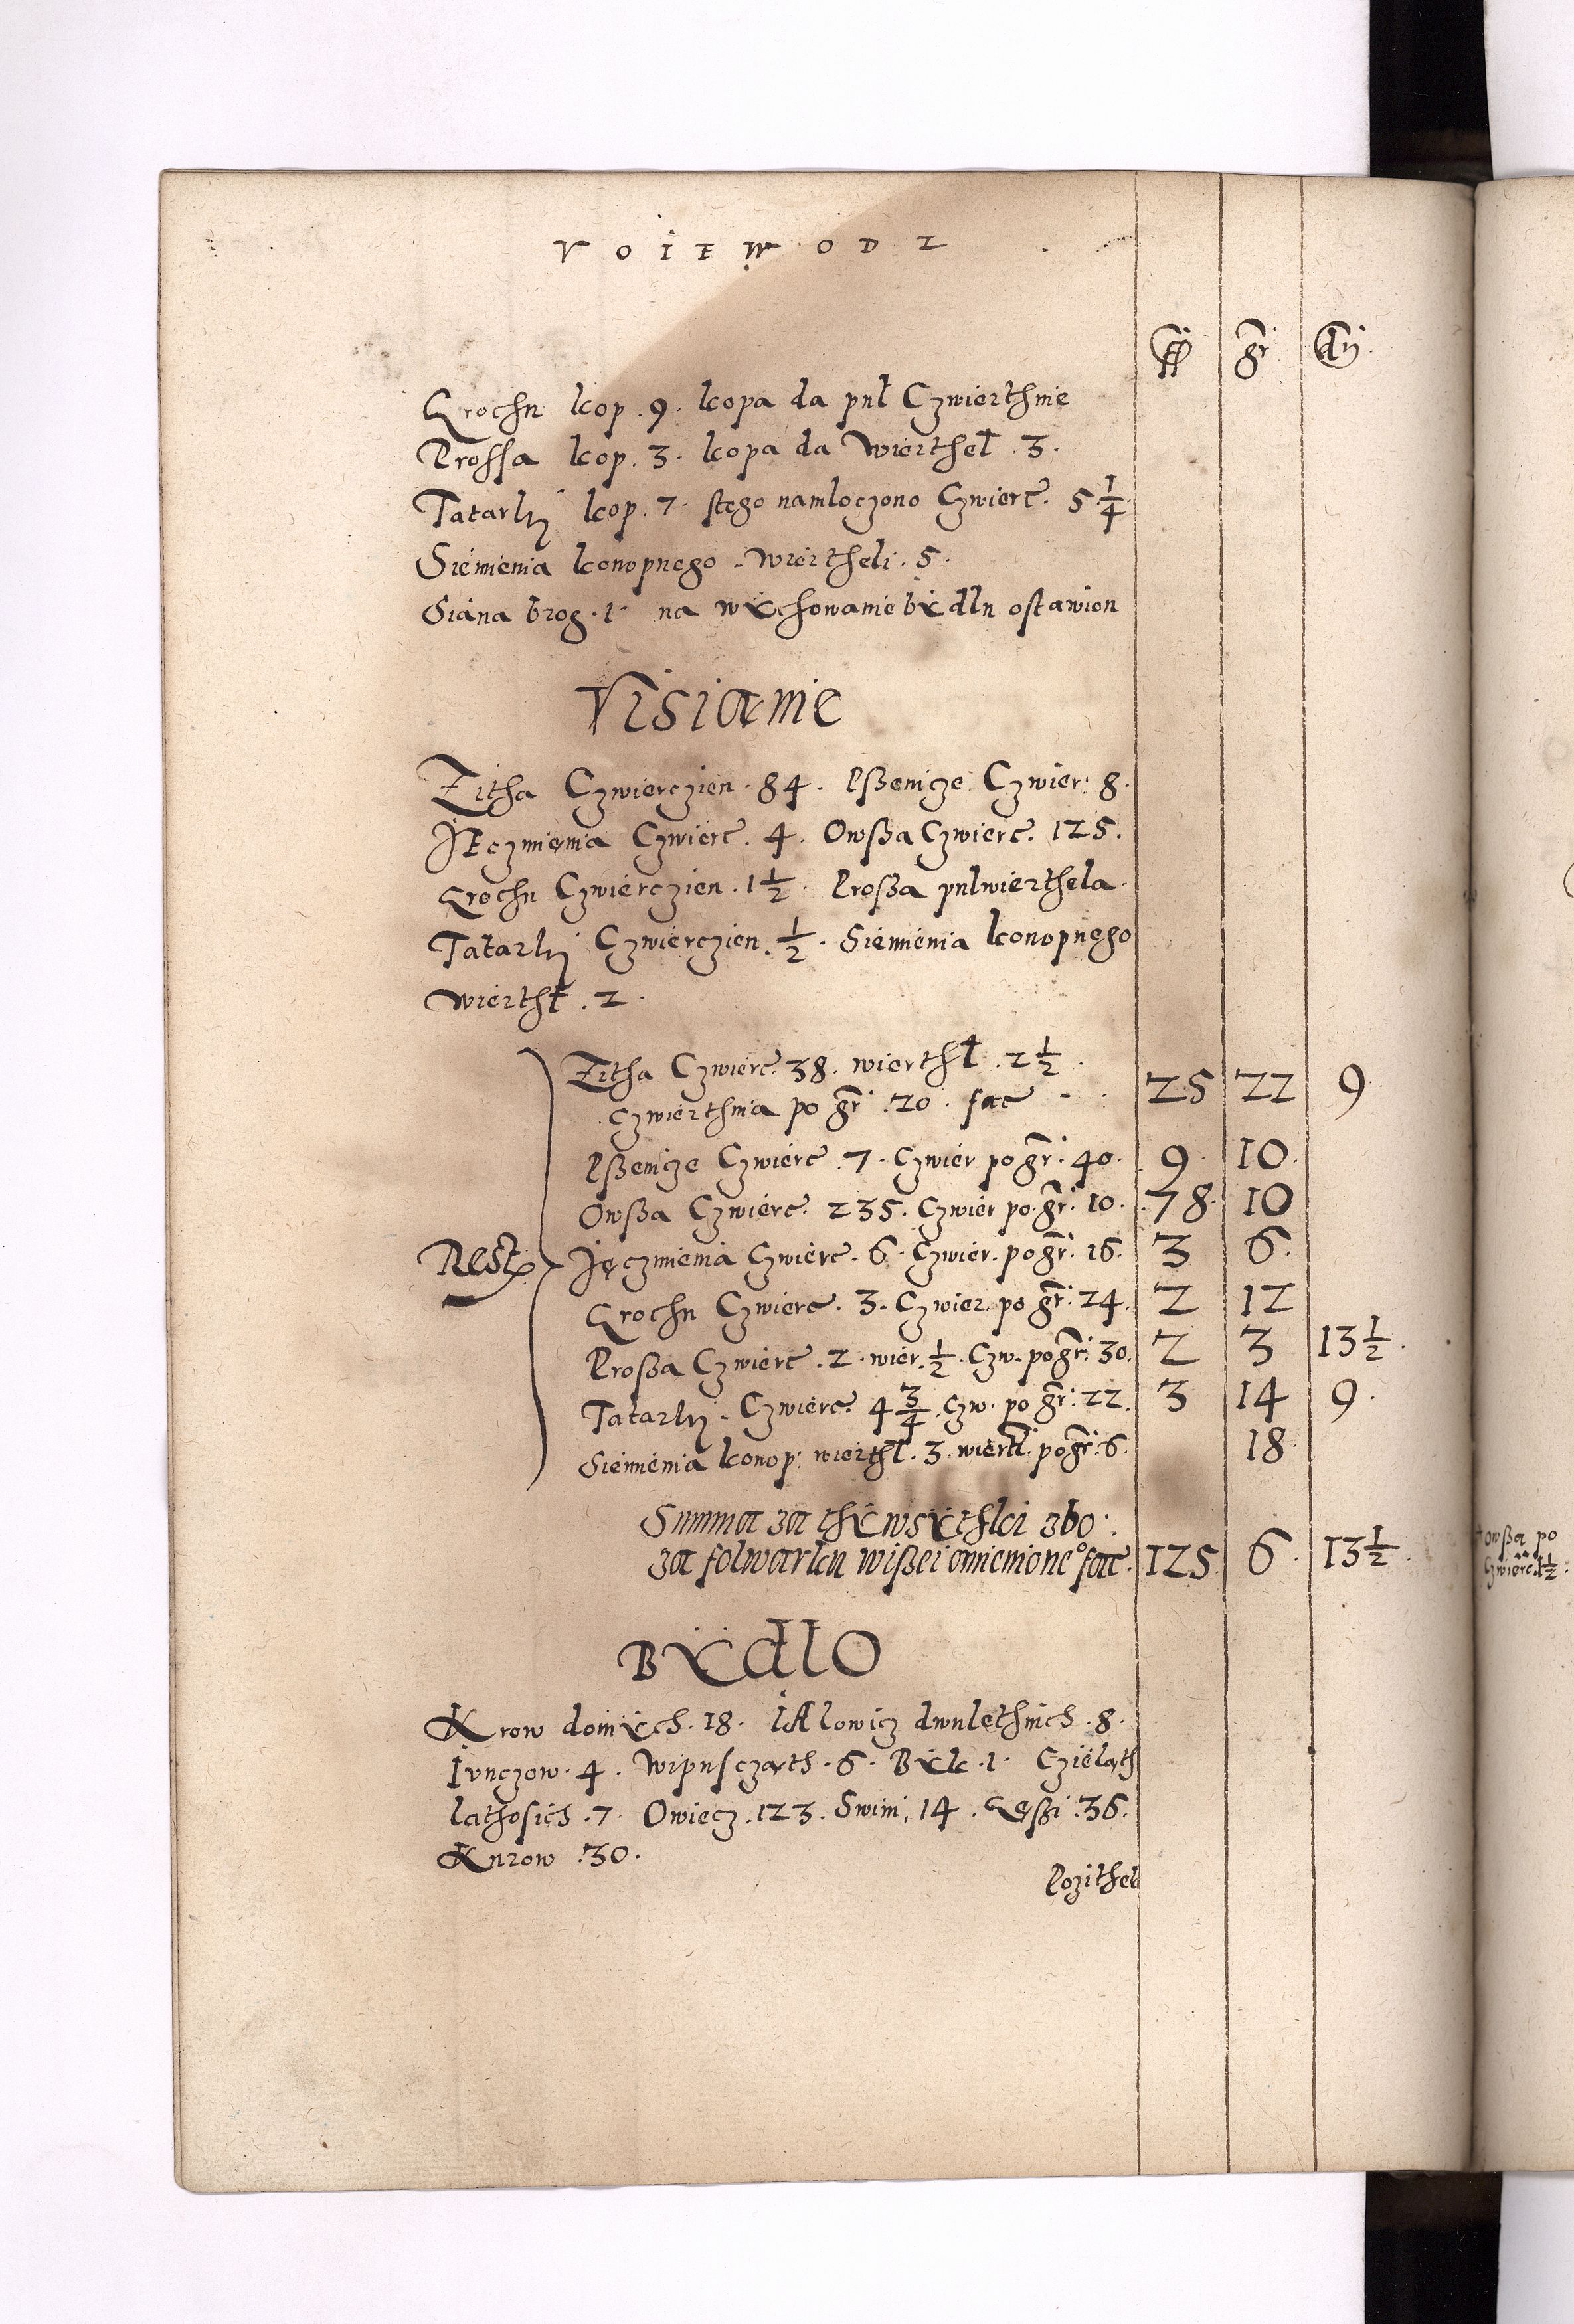 VOIEWODZ
ff gr dn
Grochu kop .9. kopa da puł Czwierthnie
Prossa kop. 3. kopa da Wierthel .3.
Tatarky kop. 7. stego namloczono Czwierc. 5 1/4
Siemienia konopnego . Wiertheli . 5 .
Siana brog .1. na wÿchowanie bÿdlu ostawion
Visianie
Zitha Czwierczien . 84 . Pßenicze Czwier: 8.
JEczmienia Czwierc . 4 . Owßa Czwierc. 125.
Grochu Czwierczien . 1 1/2 . Proßa pulwierthela .
Tatarky Czwierczien . 1/2 . Siemienia konopnego
Wierthl . 2 .
Zitha Czwierc. 38. wierthl . 2 1/2 .
Czwierthnia po gr .20 . fac - . 25 22 9.
Pßenicze Czwierc .7. Czwier po gr. 40. 9. 10.
Owßa Czwierc. 235. Czwier po. gr. 10. 78. 10
Rest. Jęczmienia Czwierc. 6. Czwier. po gr. 16. 3 6.
Grochu Czwierc. 3. Czwier. po gr. 24. 2 12
Proßa Czwierc .2. wier. 1/2 . Czw. po gr. 30. 2 3 13 1/2.
Tatarky . Czwierc. 4 3/4 . czw. po gr. 22. 3 14 9.
Siemienia konop: wierthl. 3. wiertl. po gr. 6. 18.
Summa za thÿ wsÿthki zbo.
za folwarku wißei mienione° fac. 125. 6. 13 1/2.
owßa po
Czwierc. 1 1/2 :
BŸdlO
Krow doinÿch. 18. iAlowicz dwulethnich . 8.
Iunczow. 4. Wipusczarth . 6. Bÿk .1. Cziëląth
lathosich .7. Owiecz .123. Swini, 14 . Gęßi .36.
Kurow .30.
Pozithek